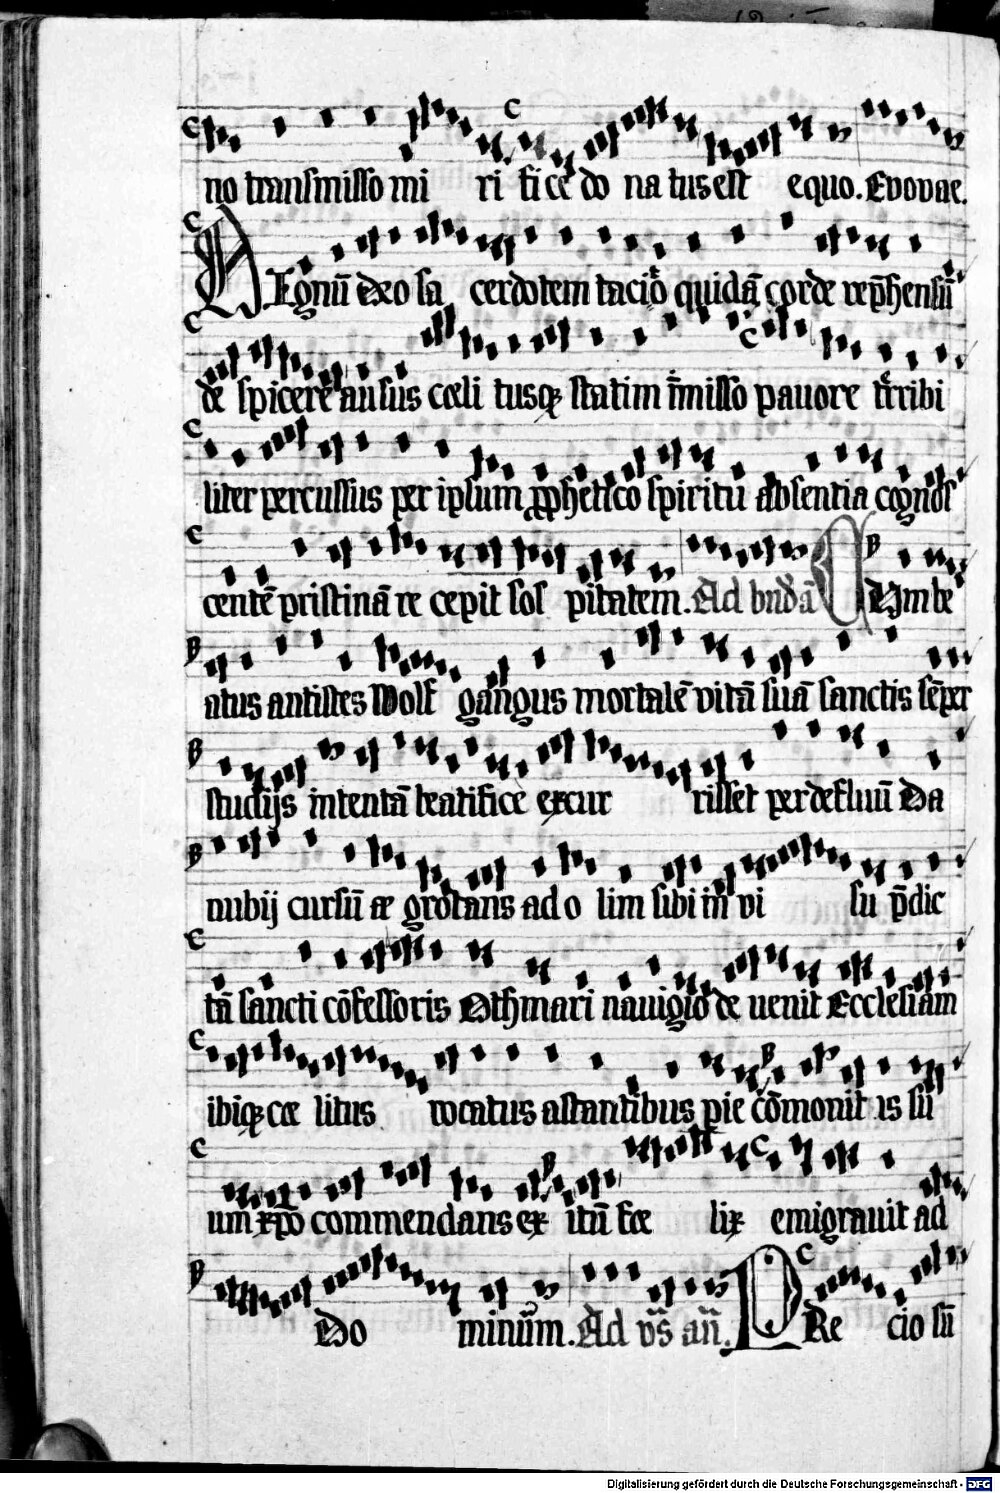 no transmisso mi ri fi ce do na tus est equo. Evovae.
A Egnū dexo sa cerdotem tacito quidā corde rep̄hensū
de spicere ausus cœli tusqꝫ statim īmisso pauore trribi
liter percussus per ipsum ꝓphetico spiritu absentia cognos
centē pristinā re cepit sos pitatem. Ad bndā C Vm be
atus antistes Wolf gangus mortalē vitā suā sanctis sēper
studijs intentā beatifice excur risset per defluuū Da
nubij cursū æ grotans ad o lim sibi in vi su p̄dic
tā sancti cōfessoris Othmari nauigio de uenit Ecclesiam
ibiqꝫ cœ litus vocatus astantibus pie cōmonit is sū
um xp̄o commendans ex itū fœ lix emigrauit ad
Do minum. Ad vs̄ an̄. P Re cio sū
Digitalisierung gefördert durch die Deutsche Forschungsgemeinschaft - DFG